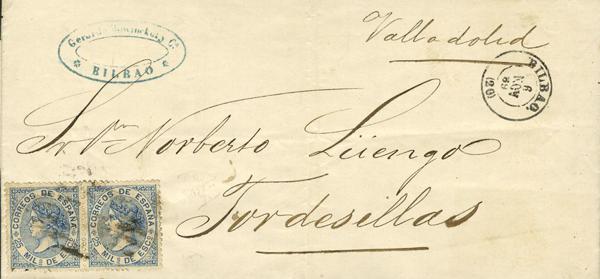 Gerardo y Cª
BILBAO
Valladolid
BILBAO.
9
NOV
68
(20)
Sr. Dn. Norberto Lüengo
Tordesillas
CORREOS DE ESPAÑA
25 MIL.S DE ESCO
CORREOS DE ESPAÑA
25 MIL.S DE ESCO